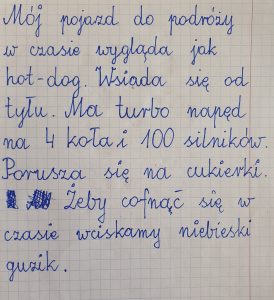 Mój pojazd do podróży
w czasie wygląda jak
hot-dog. Wsiada się od
tyłu. Ma turbo napęd
na 4 koła i 100 silników.
Porusza się na cukierki.
Żeby cofnąć się w
czasie wciskamy niebieski
guzik.